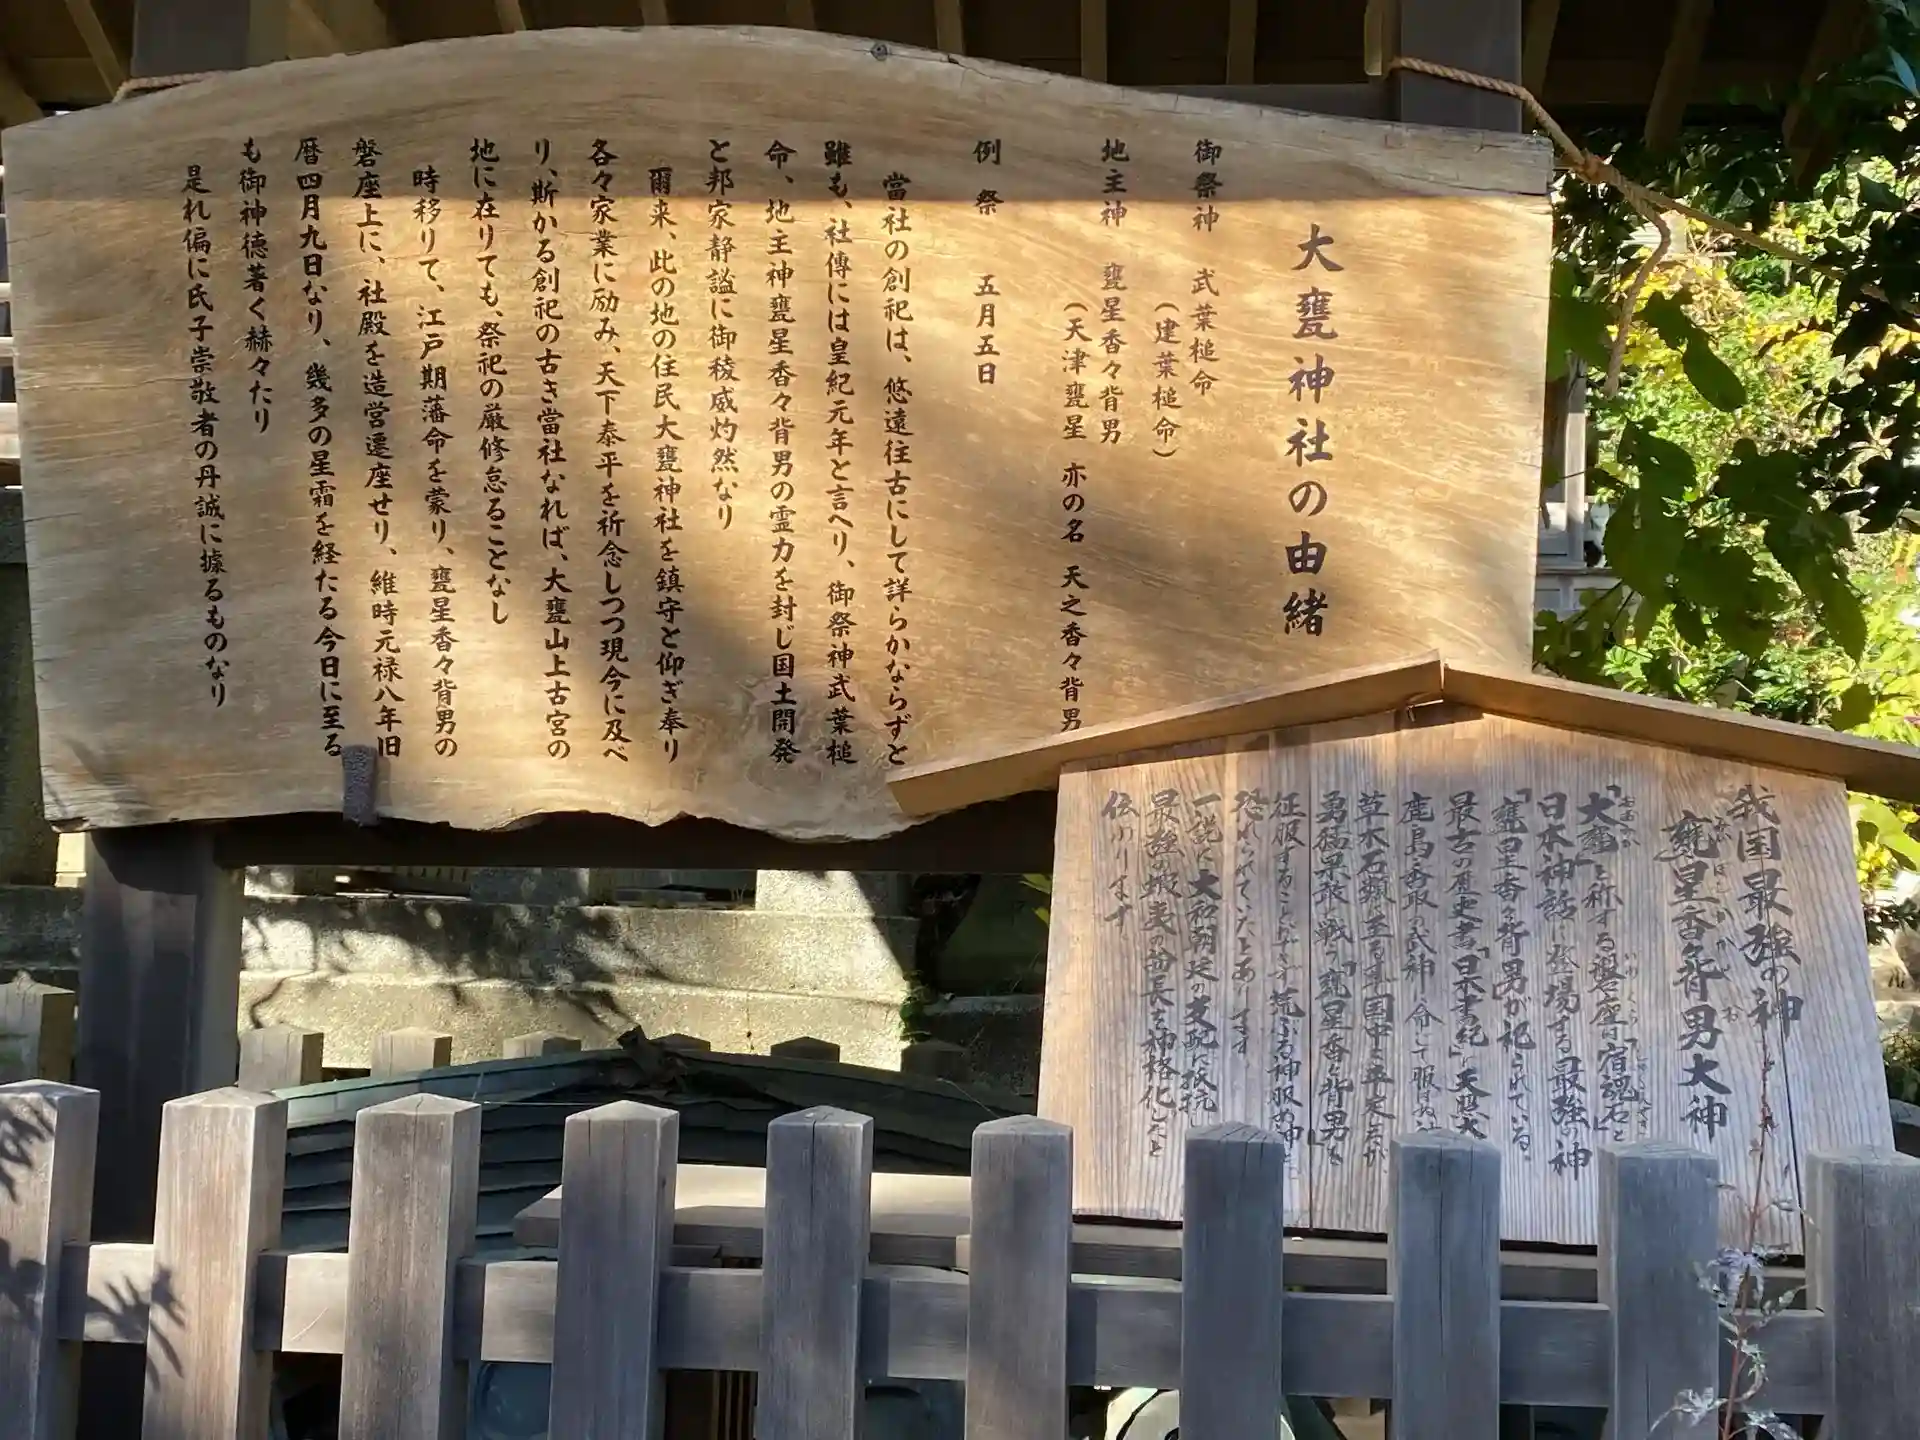 大甕神社の由緒
御祭神　武葉槌命
（建葉槌命）
地主神　甕星香々背男
（天津甕星　亦の名　天之香々背男
例　祭　五月五日
當社の創祀は、悠遠往古にして詳らかならずと
雖も、社傳には皇紀元年と言へり、御祭神武葉槌
命、地主神甕星香々背男の霊力を封じ国土開発
と邦家静謐に御稜威灼然なり
爾来、此の地の住民大甕神社を鎮守と仰ぎ奉り
各々家業に励み、天下泰平を祈念しつつ現今に及べ
り、斯かる創祀の古き當社なれば、大甕山上古宮の
地に在りても、祭祀の厳修怠ることなし
時移りて、江戸期藩命を蒙り、甕星香々背男の
磐座上に、社殿を造営遷座せり、維時元禄八年旧
暦四月九日なり、幾多の星霜を経たる今日に至る
も御神徳著く赫々たり
是れ偏に氏子崇敬者の丹誠に據るものなり
我国最強の神
甕星香々背男大神
「大甕」と称する磐座「宿魂石」と
日本神話に登場する最強の神
「甕星香々背男」が祀られている。
最古の歴史書「日本書紀」に天照大
鹿島・香取の武神に命じて服
草木石類に至るまで国中を平定したが、
勇猛果敢に戦う「甕星香々背男」を
征服することができず荒ぶる神服わぬ神と
恐れられていたとあります。
一説に大和朝廷の支配に抵抗し
最強の蝦夷の首長を神格化したと
伝わります。